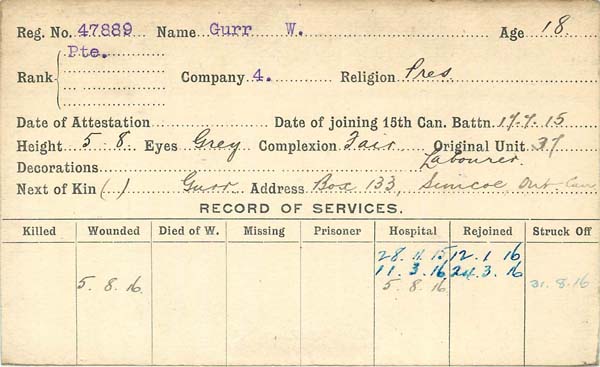 Reg. No. 47889 Name Gurr W. Age 18.
Pte.
Rank Company 4. Religion Pres.
Date of Attestation Date of joining 15th Can. Battn. 17.7.15
Height 5 8 Eyes Grey Complexion Fair Original Unit 37
Decorations Labourer.
Next of Kin ( ) Gurr Address Box 133, Simcoe, Ont. Can
RECORD OF SERVICES.
Killed Wounded Died of W. Missing Prisoner Hospital Rejoined Struck Off
28.11.15 12.1.16
11.3.16 24.3.16
5.8.16. 5.8.16 31.8.16